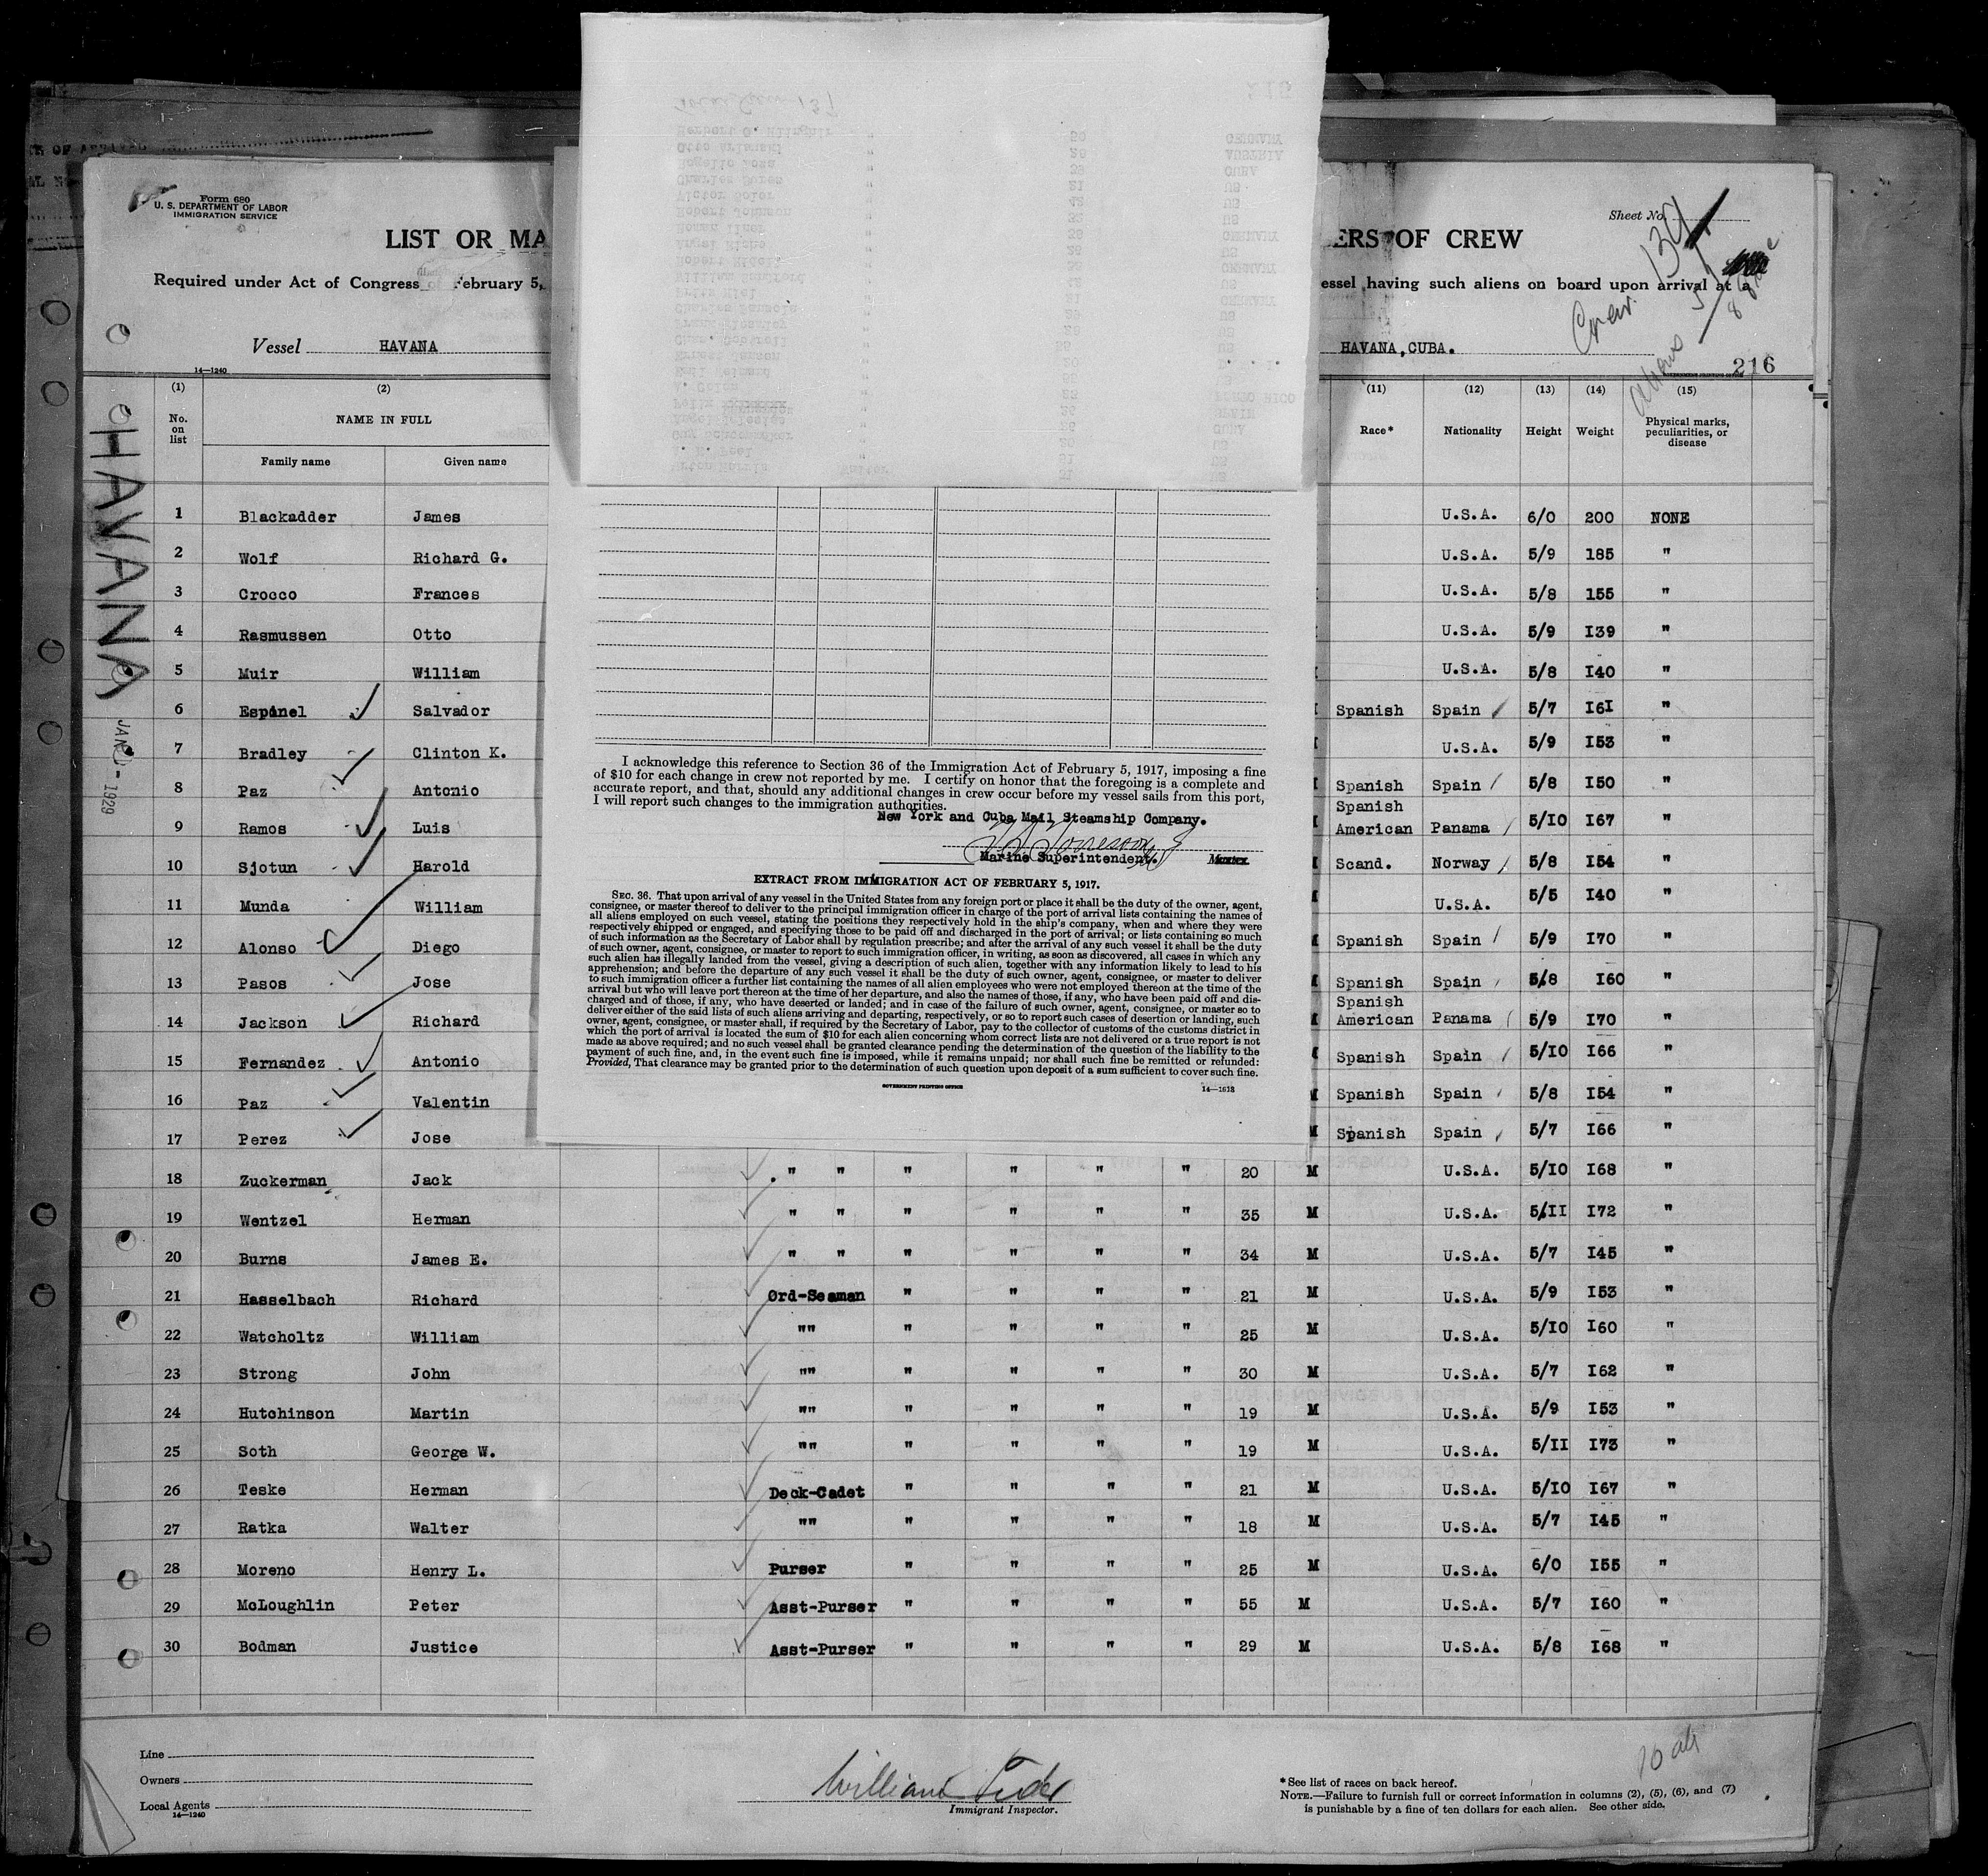 Form 680
U. S. DEPARTMENT OF LABOR
IMMIGRATION SERVICE
LIST OR MA
ERS OF CREW
Sheet No.
Required under Act of Congress February 5,
essel having such aliens on board upon arrival at a
Vessel HAVANA
HAVANA, CUBA.
Crew 137
aliens 51
216
14—1240
HAVANA
JAN - 1929
(1) (2) (11) (12) (13) (14) (15)
No. on list NAME IN FULL Race* Nationality Height Weight Physical marks, peculiarities, or disease
Family name Given name
1 Blackadder James U.S.A. 6/0 200 NONE
2 Wolf Richard G. U.S.A. 5/9 185 "
3 Crocco Frances U.S.A. 5/8 155 "
4 Rasmussen Otto U.S.A. 5/9 I39 "
5 Muir William U.S.A. 5/8 I40 "
6 Espinel Salvador Spanish Spain 5/7 I6I "
7 Bradley Clinton K. U.S.A. 5/9 I53 "
8 Paz Antonio Spanish Spain 5/8 I50 "
9 Ramos Luis Spanish American Panama 5/10 I67 "
10 Sjotun Harold Scand. Norway 5/8 I54 "
11 Munda William U.S.A. 5/5 I40 "
12 Alonso Diego Spanish Spain 5/9 I70 "
13 Pasos Jose Spanish Spain 5/8 I60 "
14 Jackson Richard Spanish American Panama 5/9 I70 "
15 Fernandez Antonio Spanish Spain 5/IO I66 "
16 Paz Valentin Spanish Spain 5/8 I54 "
17 Perez Jose M Spanish Spain 5/7 I66 "
18 Zuckerman Jack " " " " " " 20 M U.S.A. 5/IO I68 "
19 Wentzel Herman " " " " " " 35 M U.S.A. 5/II I72 "
20 Burns James E. " " " " " " 34 M U.S.A. 5/7 I45 "
21 Hasselbach Richard Ord-Seaman " " " " 21 M U.S.A. 5/9 I53 "
22 Watcholtz William "" " " " " 25 M U.S.A. 5/IO I60 "
23 Strong John "" " " " " 30 M U.S.A. 5/7 I62 "
24 Hutchinson Martin "" " " " " 19 M U.S.A. 5/9 I53 "
25 Soth George W. "" " " " " 19 M U.S.A. 5/II I73 "
26 Teske Herman Deck-Cadet " " " " 21 M U.S.A. 5/IO I67 "
27 Ratka Walter "" " " " " 18 M U.S.A. 5/7 I45 "
28 Moreno Henry L. Purser " " " " 25 M U.S.A. 6/0 I55 "
29 McLoughlin Peter Asst-Purser " " " " 55 M U.S.A. 5/7 I60 "
30 Bodman Justice Asst-Purser " " " " 29 M U.S.A. 5/8 I68 "
I acknowledge this reference to Section 36 of the Immigration Act of February 5, 1917, imposing a fine
of $10 for each change in crew not reported by me. I certify on honor that the foregoing is a complete and
accurate report, and that, should any additional changes in crew occur before my vessel sails from this port,
I will report such changes to the immigration authorities.
New York and Cuba Mail Steamship Company.
Marine Superintendent.
EXTRACT FROM IMMIGRATION ACT OF FEBRUARY 5, 1917.
SEC. 36. That upon arrival of any vessel in the United States from any foreign port or place it shall be the duty of the owner, agent,
consignee, or master thereof to deliver to the principal immigration officer in charge of the port of arrival lists containing the names of
all aliens employed on such vessel, stating the positions they respectively hold in the ship's company, when and where they were
respectively shipped or engaged, and specifying those to be paid off and discharged in the port of arrival; or lists containing so much
of such information as the Secretary of Labor shall by regulation prescribe; and after the arrival of any such vessel it shall be the duty
of such owner, agent, consignee, or master to report to such immigration officer, in writing, as soon as discovered, all cases in which any
such alien has illegally landed from the vessel, giving a description of such alien, together with any information likely to lead to his
apprehension; and before the departure of any such vessel it shall be the duty of such owner, agent, consignee, or master to deliver
to such immigration officer a further list containing the names of all alien employees who were not employed thereon at the time of the
arrival but who will leave port thereon at the time of her departure, and also the names of those, if any, who have been paid off and dis-
charged and of those, if any, who have deserted or landed; and in case of the failure of such owner, agent, consignee, or master so to
deliver either of the said lists of such aliens arriving and departing, respectively, or so to report such cases of desertion or landing, such
owner, agent, consignee, or master shall, if required by the Secretary of Labor, pay to the collector of customs of the customs district in
which the port of arrival is located the sum of $10 for each alien concerning whom correct lists are not delivered or a true report is not
made as above required; and no such vessel shall be granted clearance pending the determination of the question of the liability to the
payment of such fine, and, in the event such fine is imposed, while it remains unpaid; nor shall such fine be remitted or refunded:
Provided, That clearance may be granted prior to the determination of such question upon deposit of a sum sufficient to cover such fine.
GOVERNMENT PRINTING OFFICE
14—1613
Line
Owners
Local Agents
14—1240
William
Immigrant Inspector.
10 ali
*See list of races on back hereof.
NOTE.—Failure to furnish full or correct information in columns (2), (5), (6), and (7)
is punishable by a fine of ten dollars for each alien. See other side.